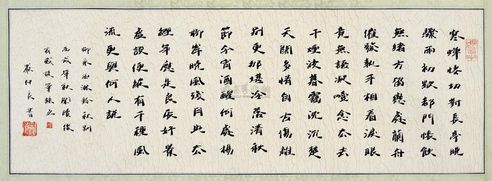 寒蟬悽切對長亭晚
驟雨初歇都門悵飲
無緒方留戀處蘭舟
催發執手相看淚眼
竟無語凝噎念去去
千煙波暮靄沉沉楚
天闊多情自古傷離
別更那堪冷落清秋
節今宵酒醒何處楊
柳岸曉風殘月此去
經年應是良辰好景
虛設便縱有千種風
流更與何人說
柳永雨淋鈴秋別